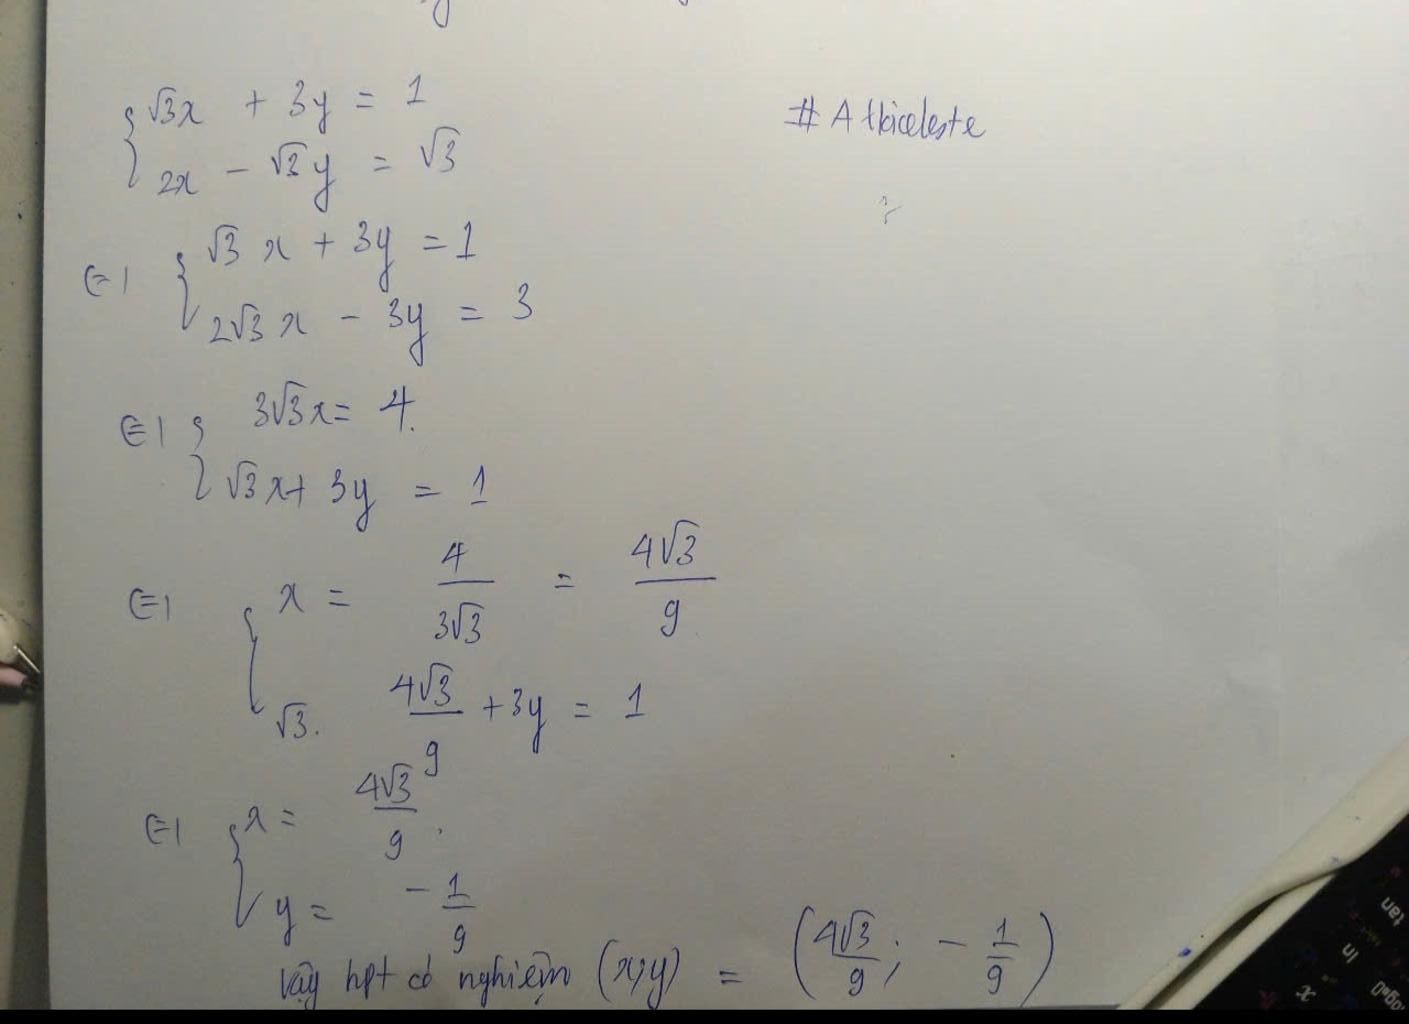 √3x + 3y = 1
# Albiceleste
2x - √3y = √3
√3 x + 3y = 1
2√3 x - 3y = 3
3√3x = 4.
√3x + 3y = 1
x = 4/(3√3) = 4√3/9
√3. 4√3/9 + 3y = 1
x = 4√3/9.
y = -1/9
Vậy hpt có nghiệm (x;y) = (4√3/9; -1/9)
tan
ln
x